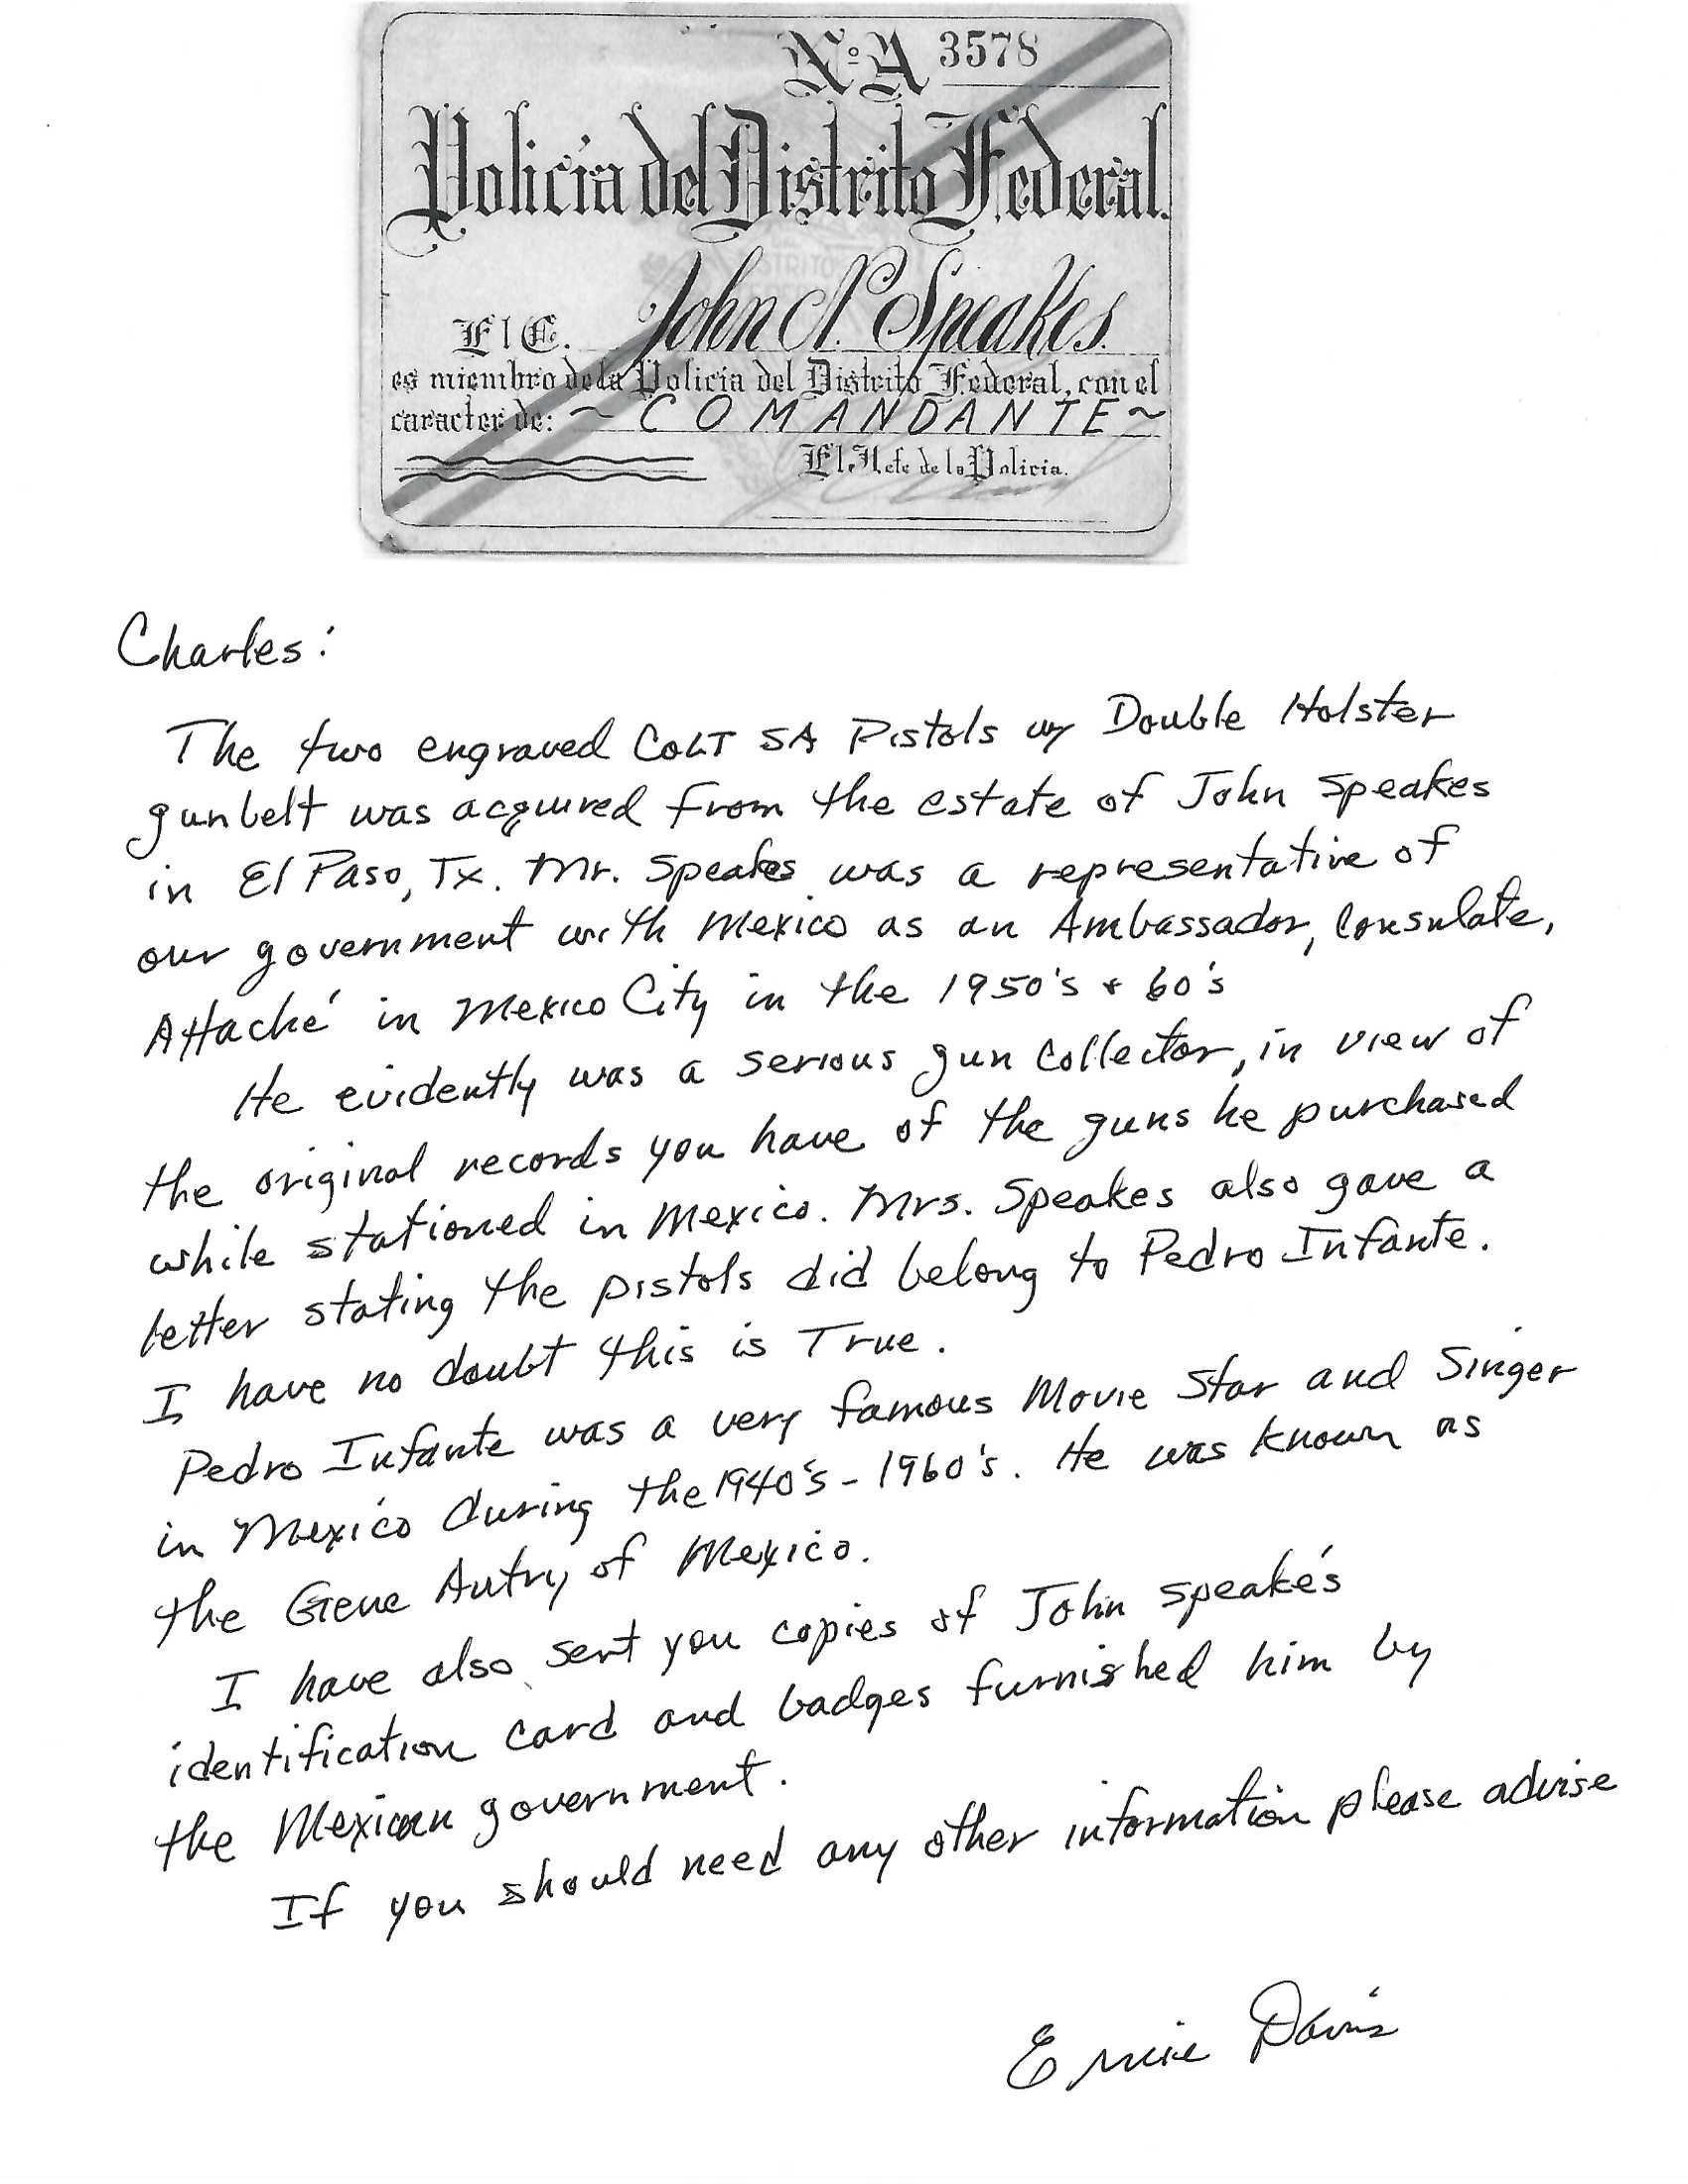 No. A 3578
Policía del Distrito Federal.
El C. John N. Speakes.
es miembro de la Policia del Distrito Federal, con el
caracter de: ~ COMANDANTE ~
El Jefe de la Policia.
Charles:
The two engraved COLT SA Pistols w/ Double Holster
gunbelt was acquired from the estate of John Speakes
in El Paso, Tx. Mr. Speakes was a representative of
our government with Mexico as an Ambassador, Consulate,
Attaché in Mexico City in the 1950's & 60's
He evidently was a serious gun collector, in view of
the original records you have of the guns he purchased
while stationed in Mexico. Mrs. Speakes also gave a
letter stating the pistols did belong to Pedro Infante.
I have no doubt this is True.
Pedro Infante was a very famous Movie Star and Singer
in Mexico during the 1940's - 1960's. He was known as
the Gene Autry of Mexico.
I have also sent you copies of John Speake's
identification card and badges furnished him by
the Mexican government.
If you should need any other information please advise
Ernie Davis